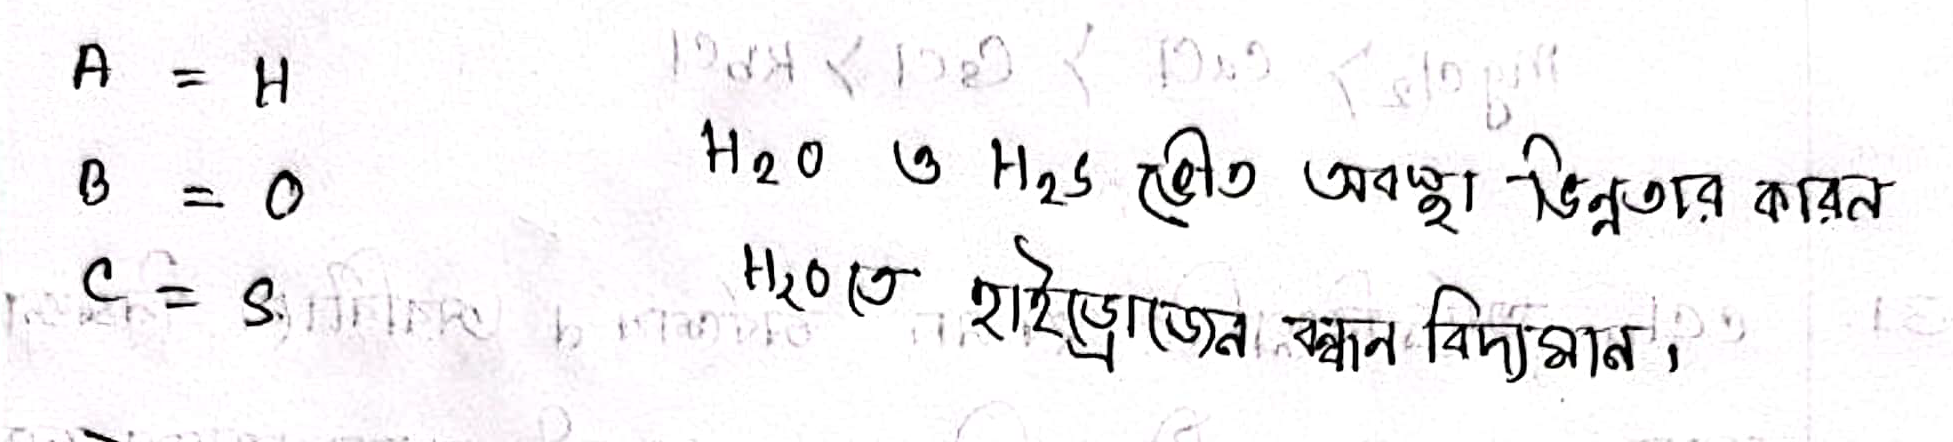 A = H
B = O
C = S
H₂O ও H₂S ভৌত অবস্থা ভিন্নতার কারন
H₂O তে হাইড্রোজেন বন্ধন বিদ্যমান,